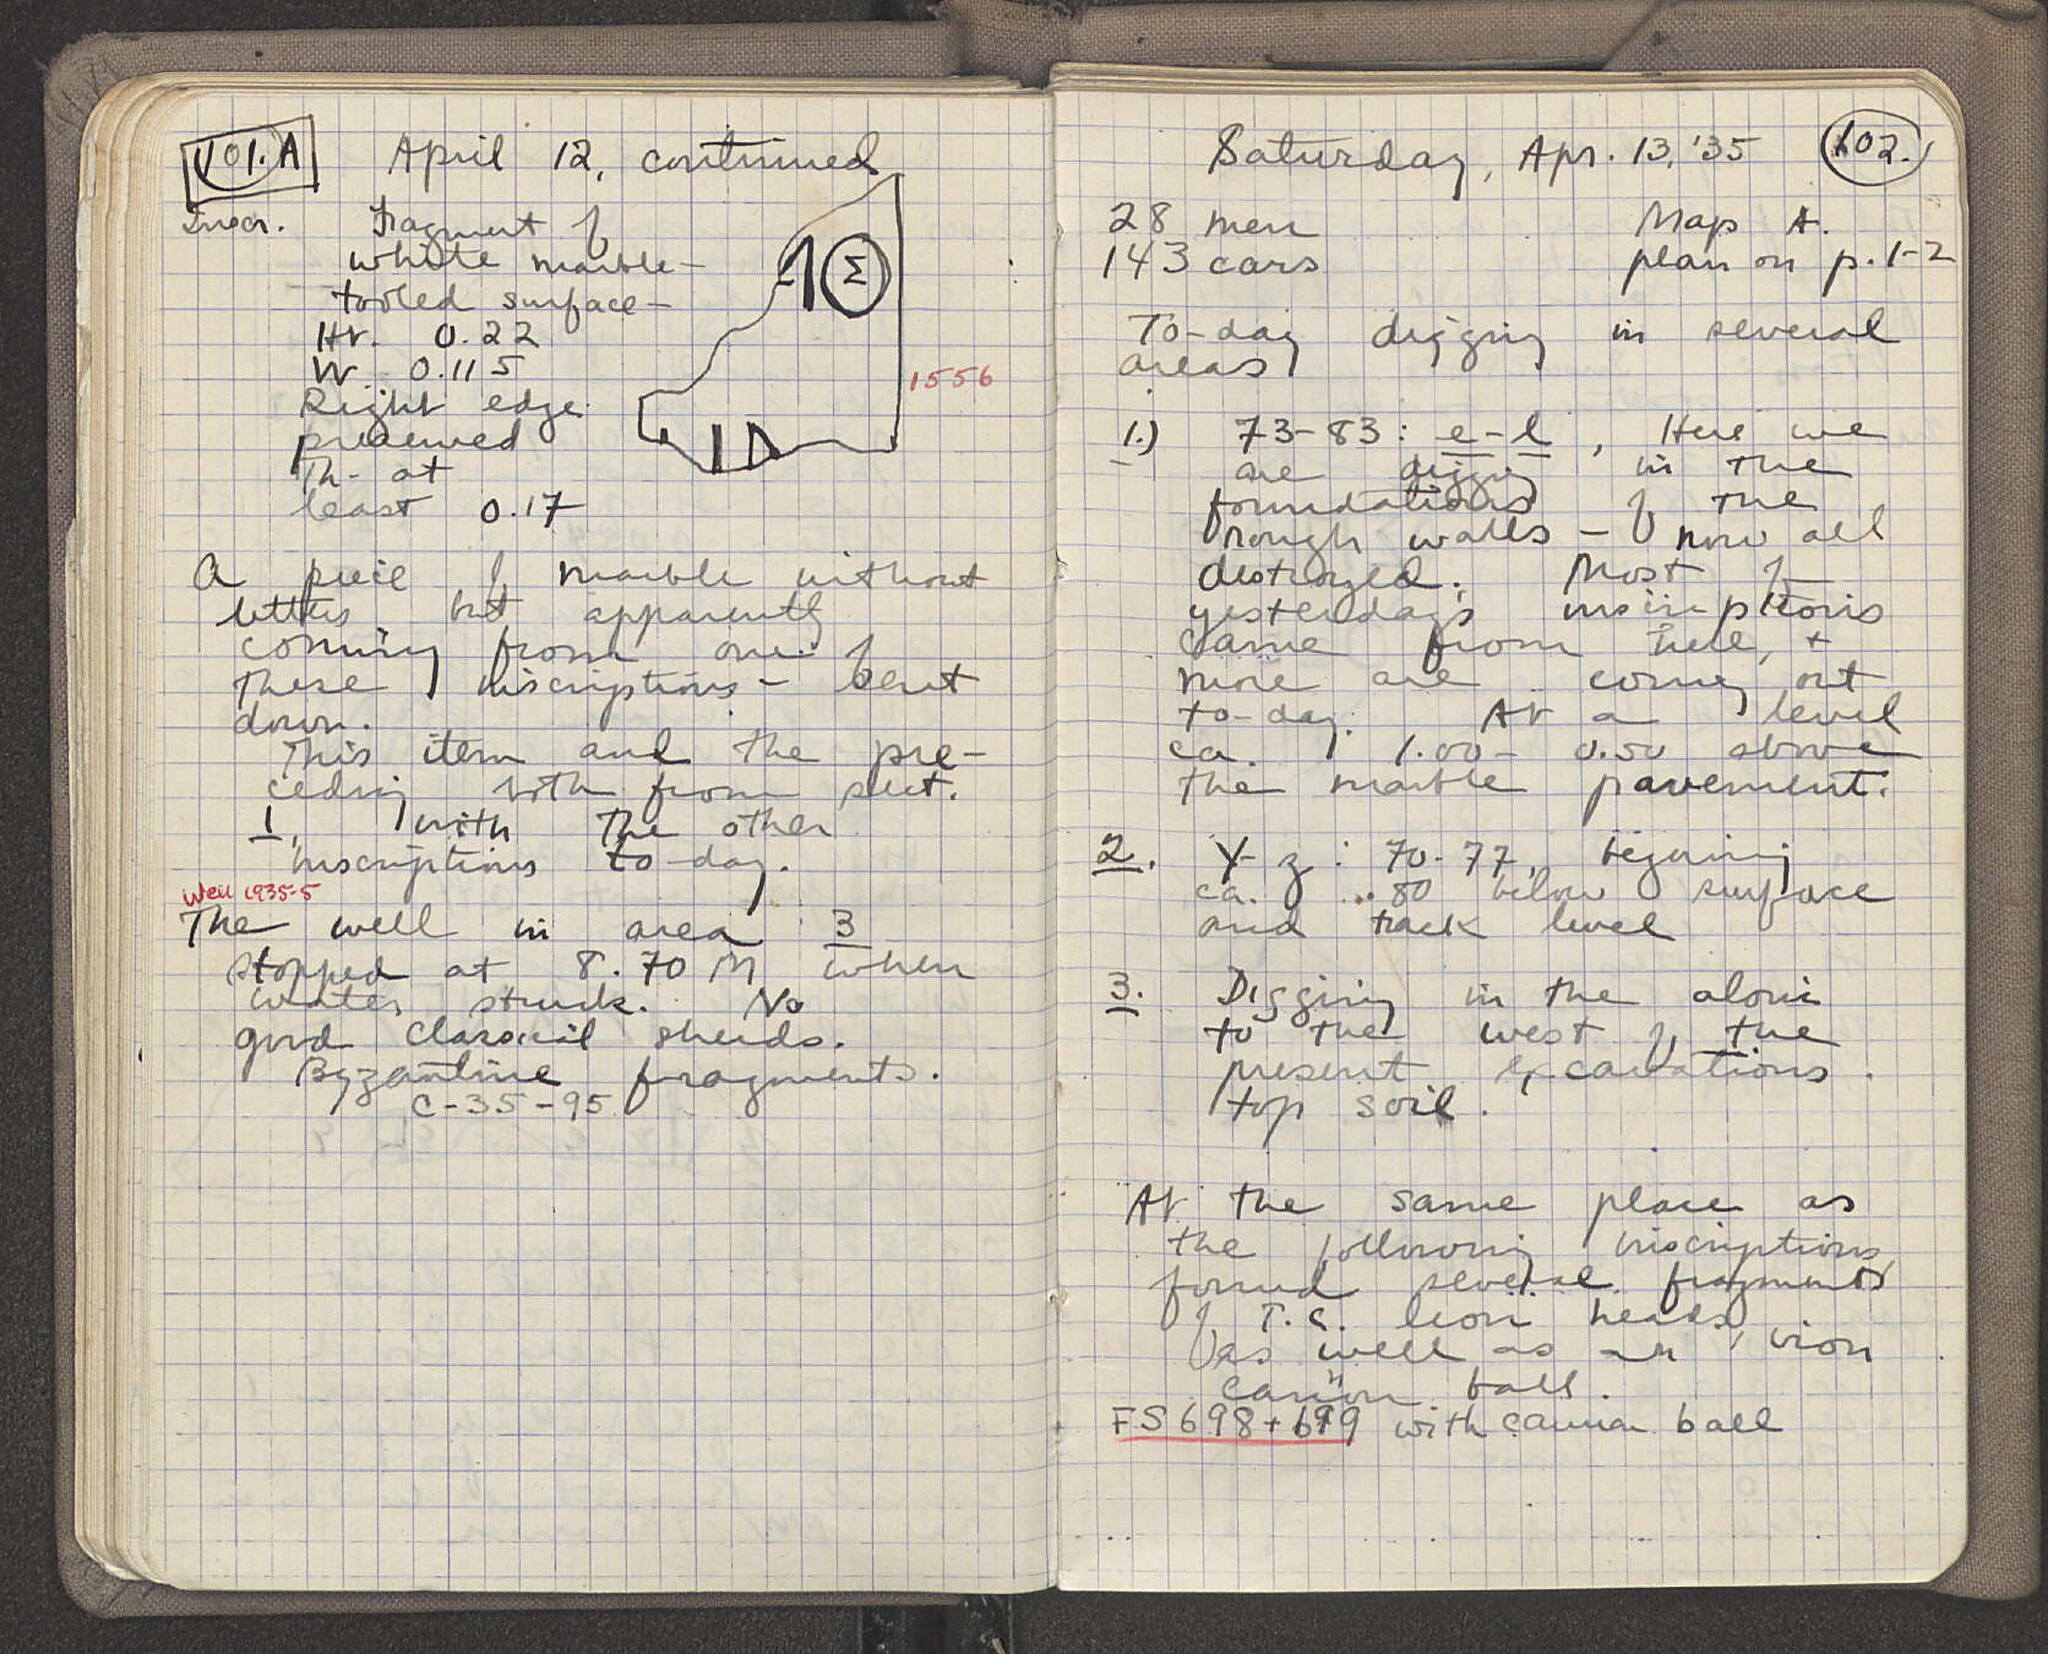 101.A April 12, continued
Inscr. Fragment of
white marble -
tooled surface -
Ht. 0.22
W. 0.115
Right edge
preserved
Th. at
least 0.17
Σ
1556
A piece of marble without
letters but apparently
coming from one of
these inscriptions - sent
down.
This item and the pre-
ceding both from sect.
1, with the other
inscriptions to-day.
Well 1935-5
The well in area 3
stopped at 8.70 M when
water struck. No
good classical sherds.
Byzantine fragments.
C-35-95
Saturday, Apr. 13, '35 102.
28 men Map A.
143 cars plan on p. 1-2
To-day digging in several
areas
1.) 73-83: e-l, Here we
are digging in the
foundations of the
rough walls - now all
destroyed. Most of
yesterday's inscriptions
came from here, +
more are coming out
to-day. At a level
ca. 1.00 - 0.50 above
the marble pavement.
2. Y-z: 70-77, beginning
ca. .80 below surface
and track level
3. Digging in the aloni
to the west of the
present excavations.
top soil.
At the same place as
the following inscriptions
found several fragments
of T.C. lion heads,
as well as an iron
cannon ball.
FS 698 + 699 with cannon ball